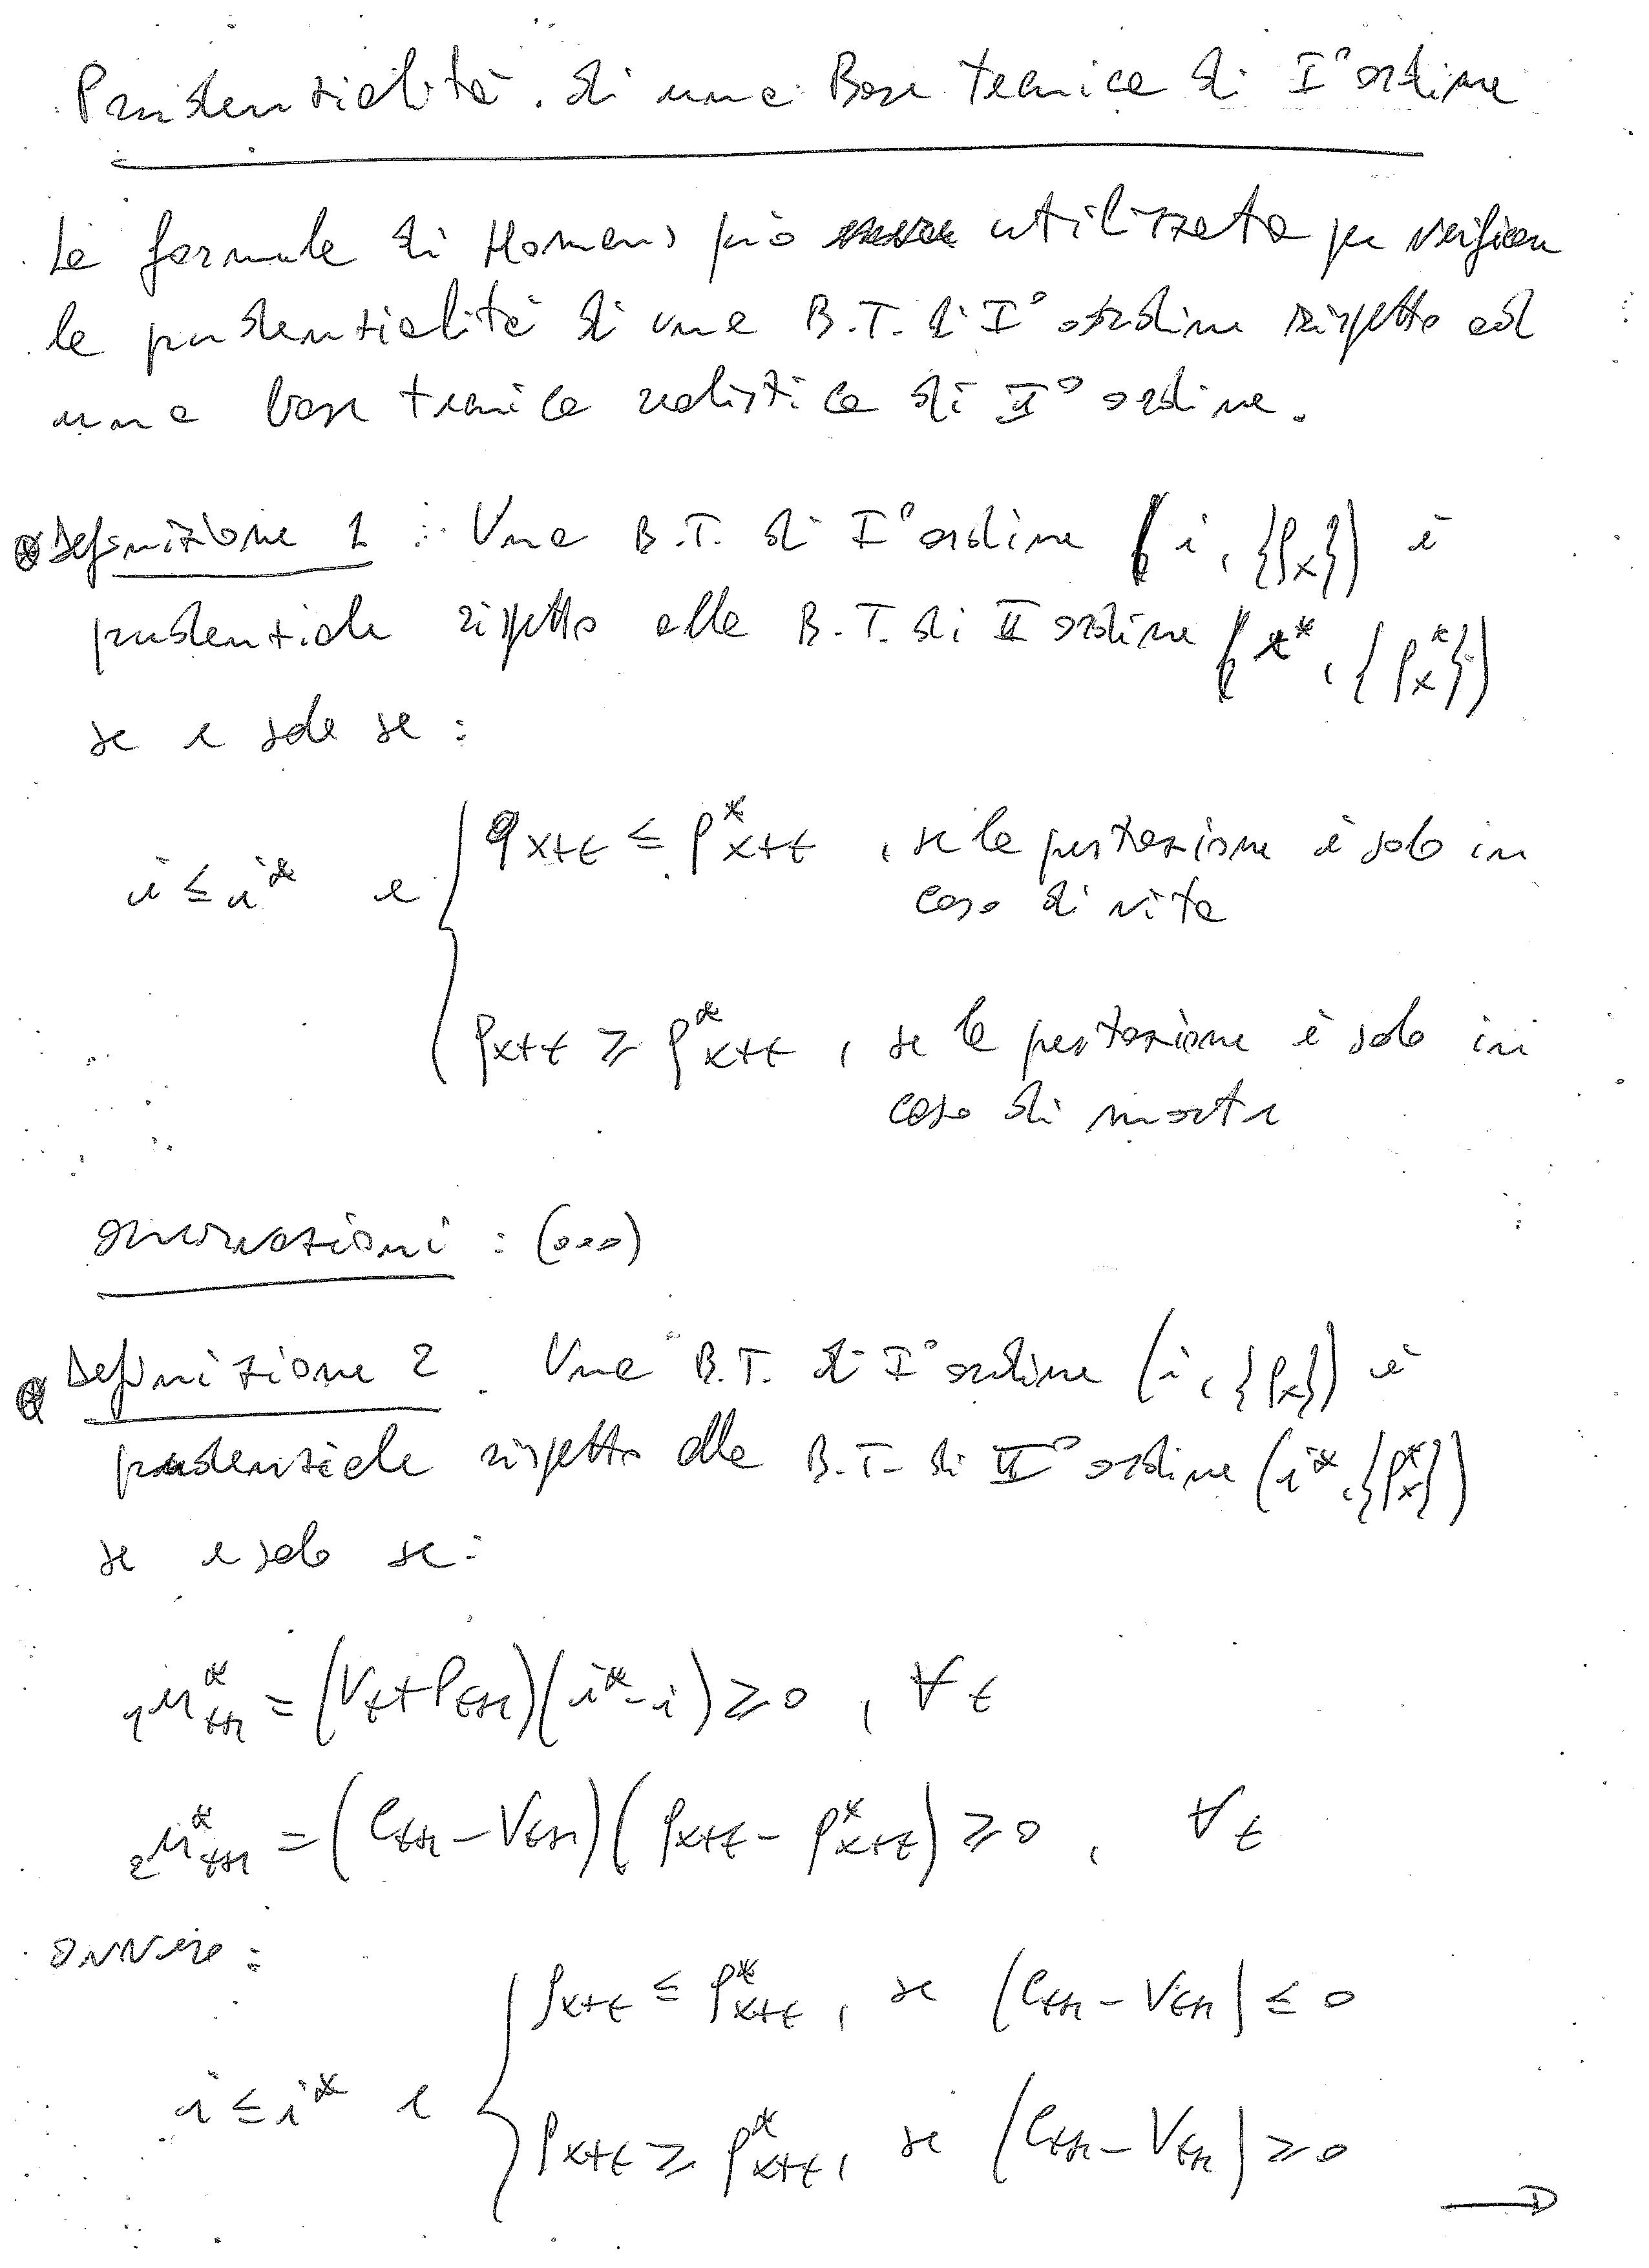 Prudenzialità di una Base tecnica di I° ordine
La formula di Homans può utilizzata per verificare
la prudenzialità di una B.T. di I° ordine rispetto ad
una base tecnica realistica di II° ordine.
Definizione 1 : Una B.T. di I° ordine (i, {q_x}) è
prudenziale rispetto alla B.T. di II ordine (i*, {q*_x})
se e solo se :
i ≤ i* e { q_{x+t} ≤ q*_{x+t} , se la prestazione è solo in
caso di vita
q_{x+t} ≥ q*_{x+t} , se la prestazione è solo in
caso di morte
osservazioni : (...)
Definizione 2. Una B.T. di I° ordine (i, {q_x}) è
prudenziale rispetto alla B.T. di II° ordine (i*, {q*_x})
se e solo se:
₁u*_{t+1} = (V_t + P_{t+1})(i* - i) ≥ 0 , ∀ t
₂u*_{t+1} = (C_{t+1} - V_{t+1})(q_{x+t} - q*_{x+t}) ≥ 0 , ∀ t
ovvero :
i ≤ i* e { q_{x+t} ≤ q*_{x+t} , se (C_{t+1} - V_{t+1}) ≤ 0
q_{x+t} ≥ q*_{x+t} , se (C_{t+1} - V_{t+1}) ≥ 0
→